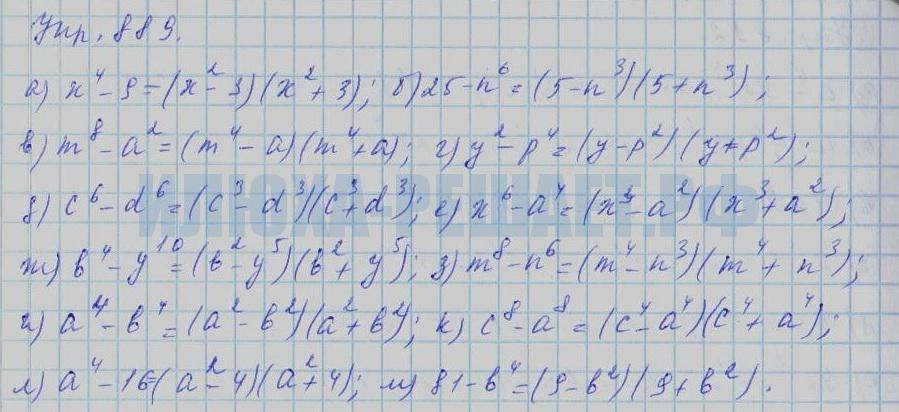 Упр. 889.
а) x⁴ - 9 = (x² - 3)(x² + 3); б) 25 - n⁶ = (5 - n³)(5 + n³);
в) m⁸ - a² = (m⁴ - a)(m⁴ + a); г) y² - p⁴ = (y - p²)(y + p²);
ИЛЮХА-РЕШАЕТ.РФ
д) c⁶ - d⁶ = (c³ - d³)(c³ + d³); е) x⁶ - a⁴ = (x³ - a²)(x³ + a²);
ж) b⁴ - y¹⁰ = (b² - y⁵)(b² + y⁵); з) m⁸ - n⁶ = (m⁴ - n³)(m⁴ + n³);
и) a⁴ - b⁴ = (a² - b²)(a² + b²); к) c⁸ - a⁸ = (c⁴ - a⁴)(c⁴ + a⁴);
л) a⁴ - 16 = (a² - 4)(a² + 4); м) 81 - b⁴ = (9 - b²)(9 + b²).